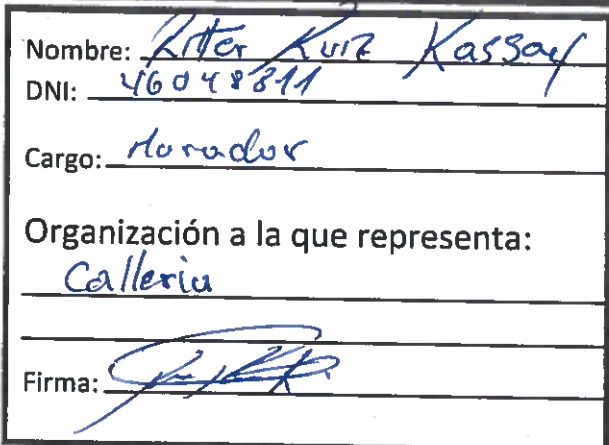 Nombre: Ritter Ruiz
DNI: 46048811
Cargo: Morador
Organización a la que representa:
Calleria
Firma: